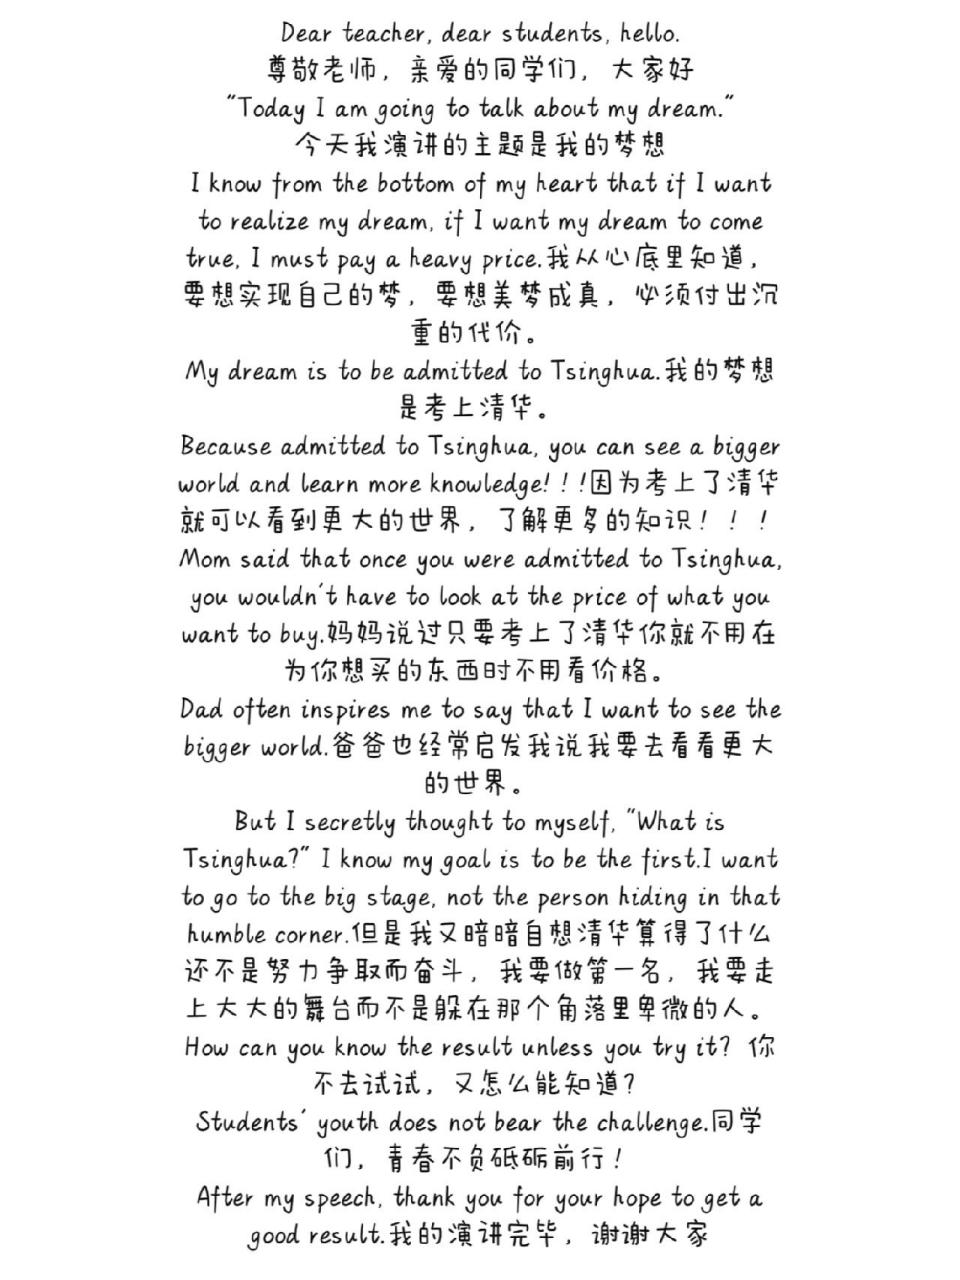 Dear teacher, dear students, hello.
尊敬老师，亲爱的同学们，大家好
"Today I am going to talk about my dream."
今天我演讲的主题是我的梦想
I know from the bottom of my heart that if I want
to realize my dream, if I want my dream to come
true, I must pay a heavy price.我从心底里知道，
要想实现自己的梦，要想美梦成真，必须付出沉
重的代价。
My dream is to be admitted to Tsinghua.我的梦想
是考上清华。
Because admitted to Tsinghua, you can see a bigger
world and learn more knowledge!!!因为考上了清华
就可以看到更大的世界，了解更多的知识！！！
Mom said that once you were admitted to Tsinghua,
you wouldn't have to look at the price of what you
want to buy.妈妈说过只要考上了清华你就不用在
为你想买的东西时不用看价格。
Dad often inspires me to say that I want to see the
bigger world.爸爸也经常启发我说我要去看看更大
的世界。
But I secretly thought to myself, "What is
Tsinghua?" I know my goal is to be the first.I want
to go to the big stage, not the person hiding in that
humble corner.但是我又暗暗自想清华算得了什么
还不是努力争取而奋斗，我要做第一名，我要走
上大大的舞台而不是躲在那个角落里卑微的人。
How can you know the result unless you try it? 你
不去试试，又怎么能知道?
Students' youth does not bear the challenge.同学
们，青春不负砥砺前行！
After my speech, thank you for your hope to get a
good result.我的演讲完毕，谢谢大家